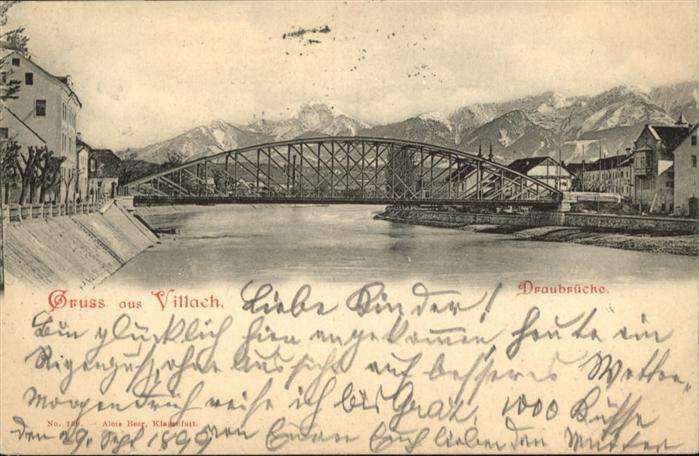 Gruss aus Villach. Liebe Kinder! Draubrücke.
Bin glücklich hier angekommen, heute ein
Regenguss, ohne Aussicht auf besseres Wetter,
Morgen früh reise ich bis Graz. 1000 Küsse
No. — Alois Beer, Klagenfurt.
den 29. Sept 1899 von Eurer Euch liebenden Mutter